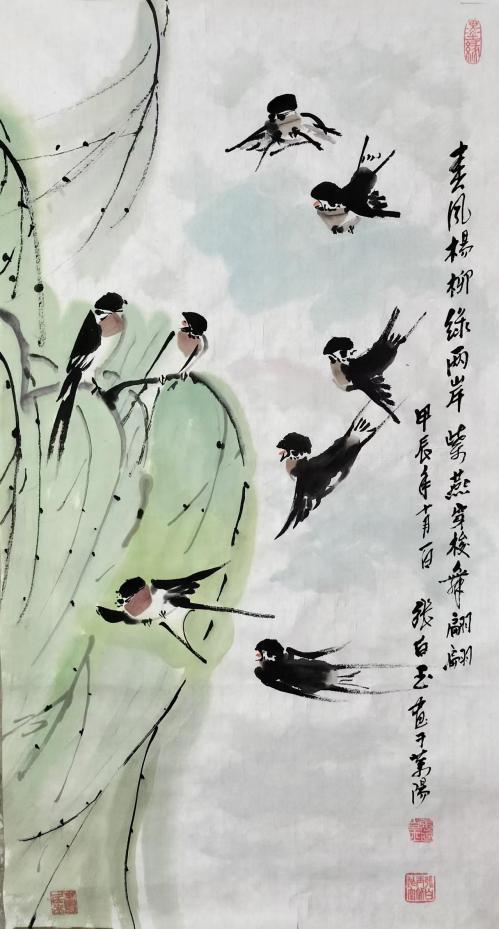 春风楊柳绿两岸 紫燕穿梭舞翩翩
甲辰年十月一日 張白玉画于荥陽